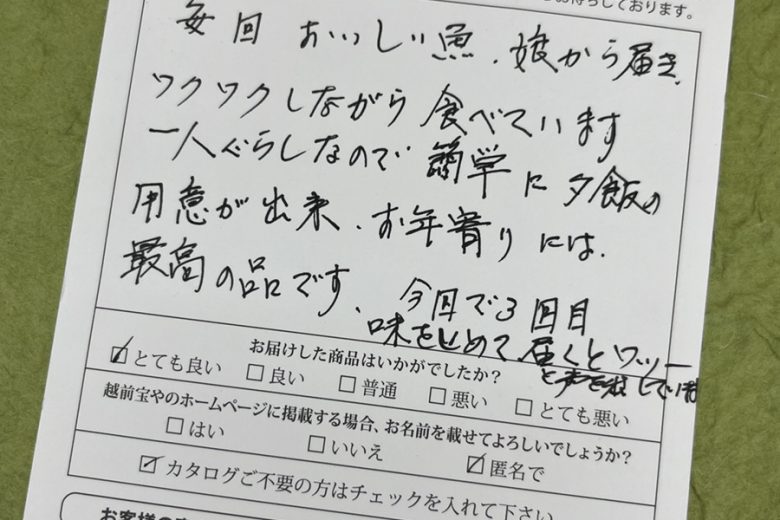 お待ちしております。
毎回 おいしい魚、娘から届き、
ワクワクしながら 食べています
一人ぐらしなので 簡単に 夕飯の
用意が出来、お年寄りには、
最高の品です、今回で3回目
味をしめて 届くとワッー
と声を出しています
お届けした商品はいかがでしたか？
とても良い 良い 普通 悪い とても悪い
越前宝やのホームページに掲載する場合、お名前を載せてよろしいでしょうか？
はい いいえ 匿名で
カタログご不要の方はチェックを入れて下さい
お客様の